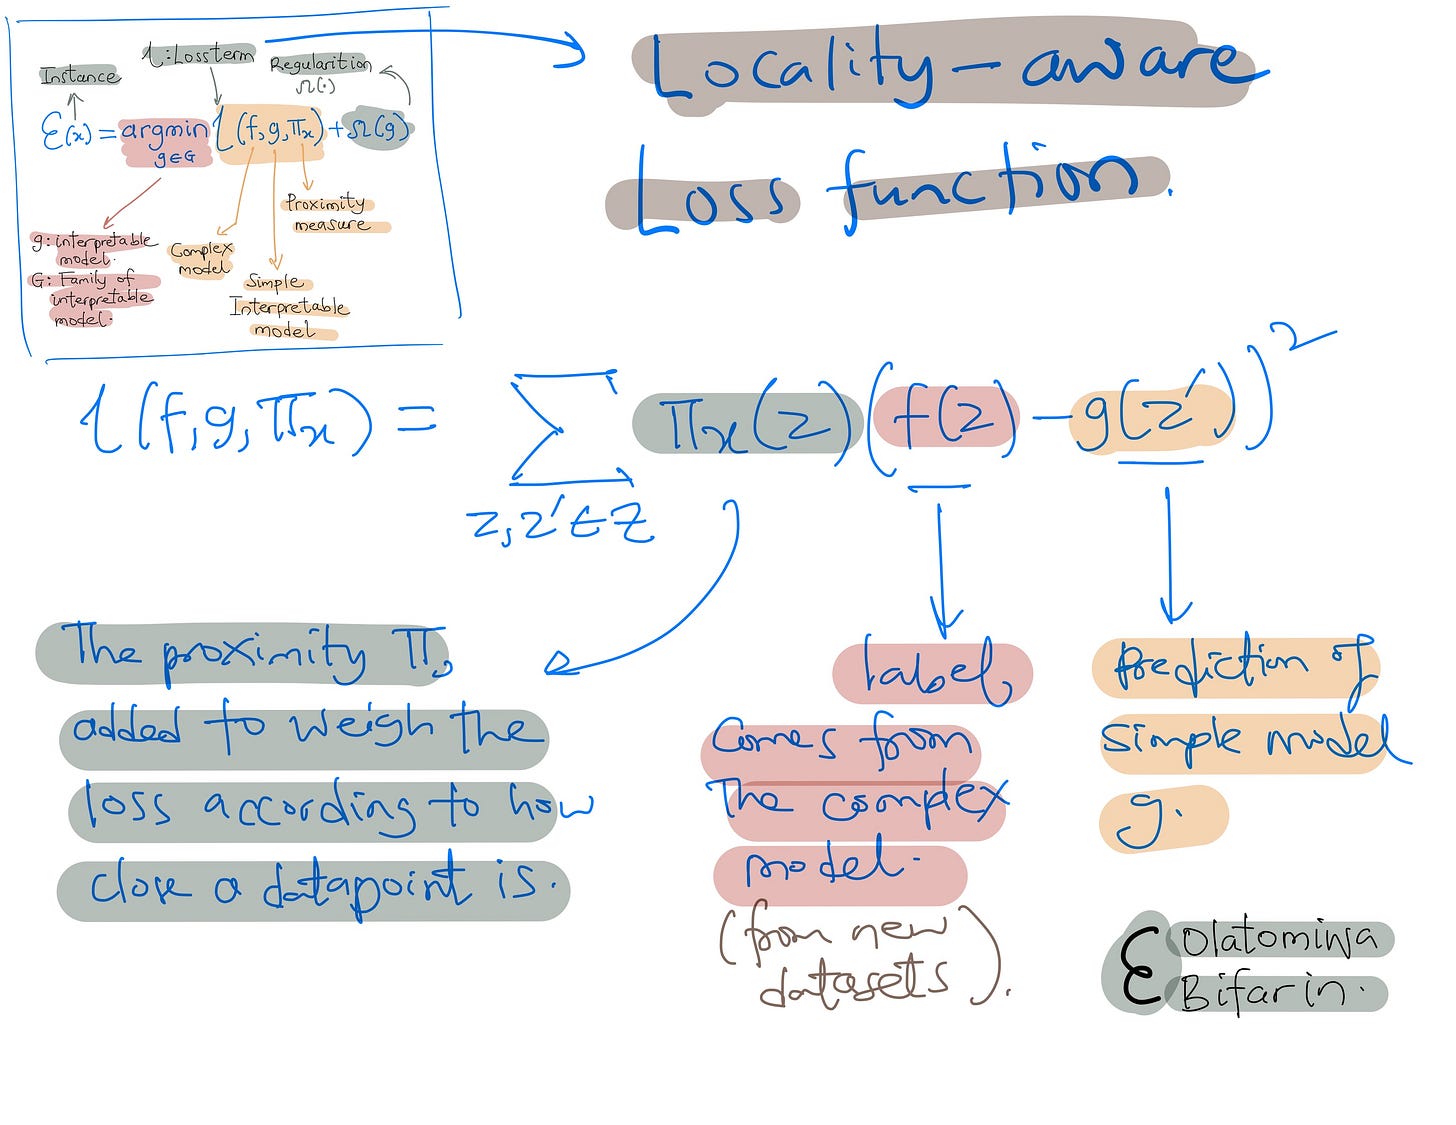 Instance
ℓ: Loss term
Regularition
Ω(·)
ξ(x) = argmin ℓ(f, g, πx) + Ω(g)
g∈G
g: interpretable
model.
G: Family of
interpretable
model.
Complex
model
Simple
Interpretable
model
Proximity
measure
Locality-aware
Loss function.
ℓ(f, g, πx) = ∑ πx(z) (f(z) - g(z'))²
z, z' ∈ Z
The proximity π,
added to weigh the
loss according to how
close a datapoint is.
label,
Comes from
The complex
model.
(from new
datasets).
Prediction of
simple model
g.
ξ Olatomiwa
Bifarin.